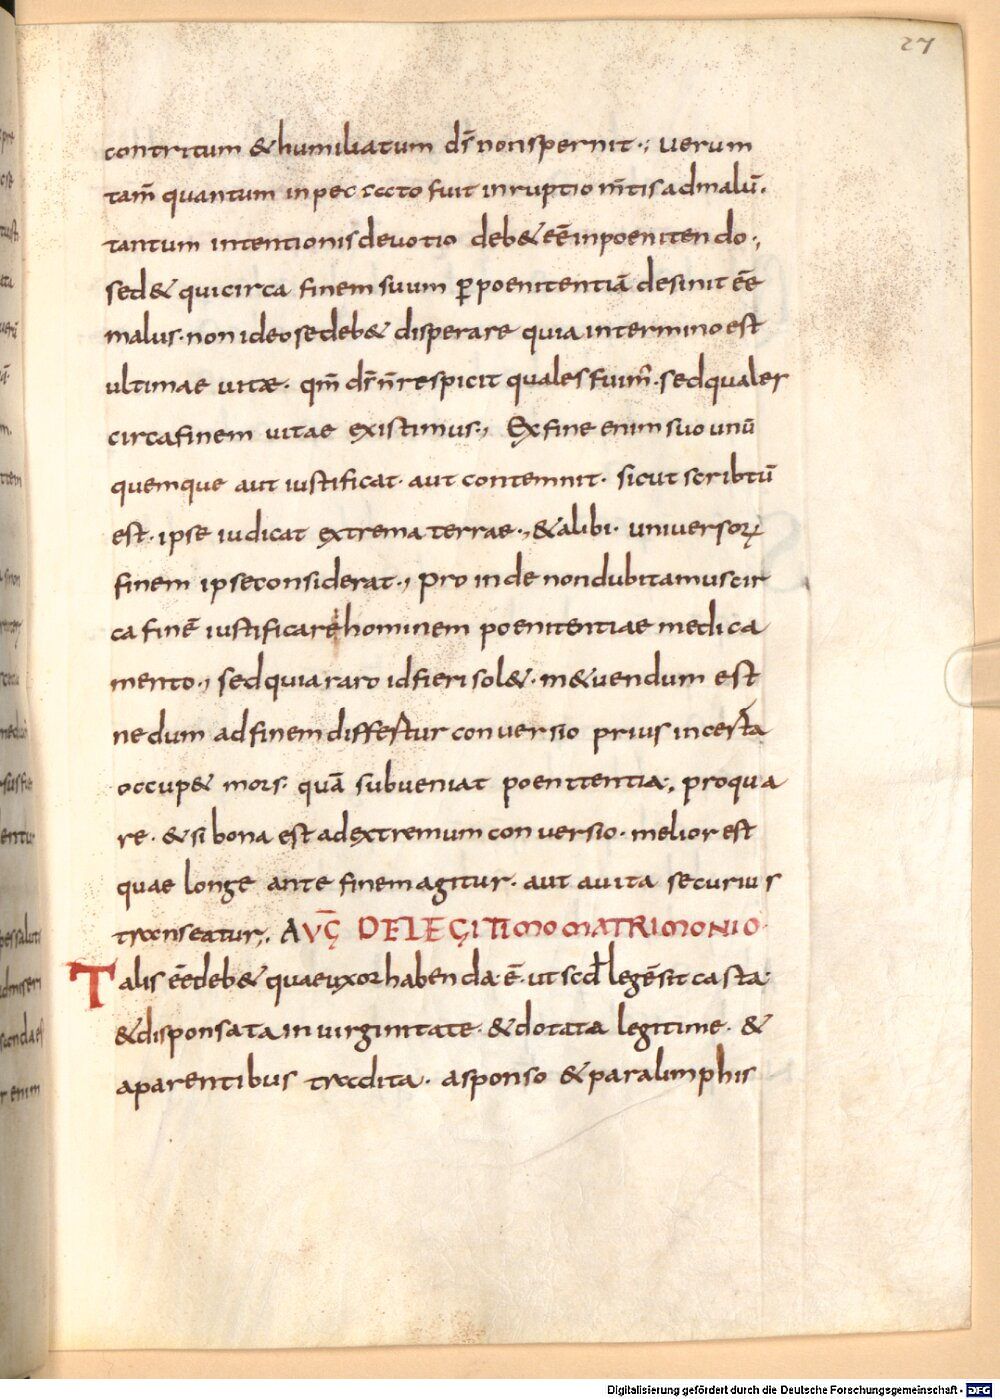 27
contritum & humiliatum dr̄ non spernit·; Uerum
tam̄ quantum in peccato fuit inruptio m̄tis ad malū.
tantum intentionis deuotio deb& eē in poenitendo·;
sed & qui circa finem suum ꝑ poenitentiā desinit eē
malus· non ideo se deb& disperare quia in termino est
ultimae uitæ· qm̄ dr̄ n̄ respicit quales fuim̄· sed quales
circa finem uitae existimus·, Ex fine enim suo unū
quemque aut iustificat· aut contemnit· sicut scribtū
est· ipse iudicat extrema terrae·, & alibi· uniuersoꝝ
finem ipse considerat·, Proinde non dubitamus cir
ca finē iustificare hominem poenitentiae medica
mento·, sed quia raro id fieri sol&· m&uendum est
ne dum ad finem differtur conuersio prius incerta
occup& mors· quā subueniat poenitentia·; proqua
re· & si bona est ad extremum conuersio· melior est
quae longe ante finem agitur· aut a uita securius
transeatur;· AUḠ DE LEGITIMO MATRIMONIO·
Talis eē deb& quae uxor habenda· ē· ut scd̄ legē sit casta·
& disponsata in uirginitate· & dotata legitime· &
a parentibus tradita· a sponso & paralimphis
Digitalisierung gefördert durch die Deutsche Forschungsgemeinschaft - DFG